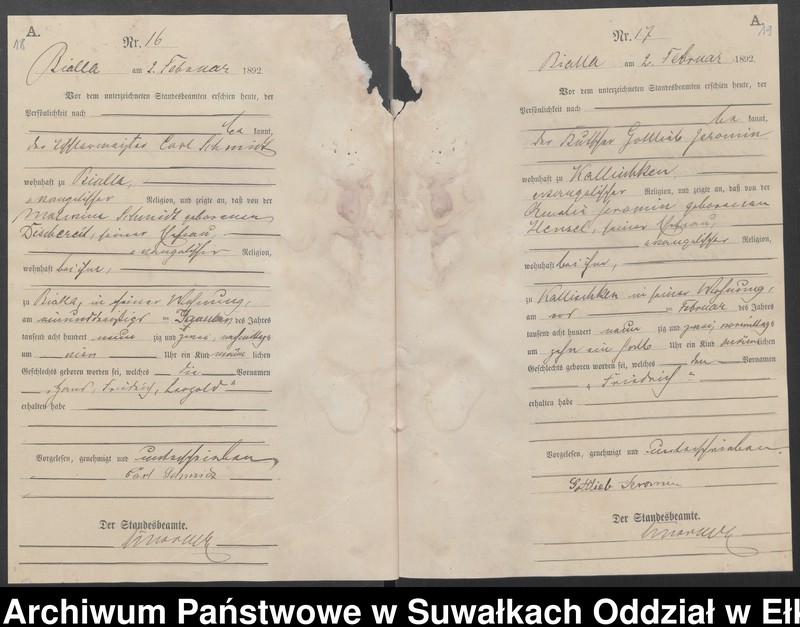 A.
18
Nr. 16
Bialla am 2. Februar 1892.
Vor dem unterzeichneten Standesbeamten erschien heute, der
Persönlichkeit nach
be kannt,
der Carl Schmidt
wohnhaft zu Bialla,
evangelischer Religion, und zeigte an, daß von der
Schmidt geborenen
seiner Ehefrau,
evangelischer Religion,
wohnhaft bei ihm,
zu Bialla, in seiner Wohnung,
am einunddreißigsten Januar des Jahres
tausend acht hundert neun zig und zwei, nachmittags
um neun Uhr ein Kind männ lichen
Geschlechts geboren worden sei, welches die Vornamen
„Hans, Friedrich, Leopold“
erhalten habe
Vorgelesen, genehmigt und unterschrieben
Carl Schmidt
Der Standesbeamte.
A.
19
Nr. 17
Bialla am 2. Februar 1892.
Vor dem unterzeichneten Standesbeamten erschien heute, der
Persönlichkeit nach
be kannt,
der Gottlieb Jeromin
wohnhaft zu Kallischken
evangelischer Religion, und zeigte an, daß von der
Amalie Jeromin geborenen
Hensel, seiner Ehefrau,
evangelischer Religion,
wohnhaft bei ihm,
zu Kallischken in seiner Wohnung,
am Februar des Jahres
tausend acht hundert neun zig und zwei, vormittags
um zehn ein halb Uhr ein Kind männ lichen
Geschlechts geboren worden sei, welches den Vornamen
„Friedrich“
erhalten habe
Vorgelesen, genehmigt und unterschrieben.
Gottlieb Jeromin
Der Standesbeamte.
Archiwum Państwowe w Suwałkach Oddział w Ełk